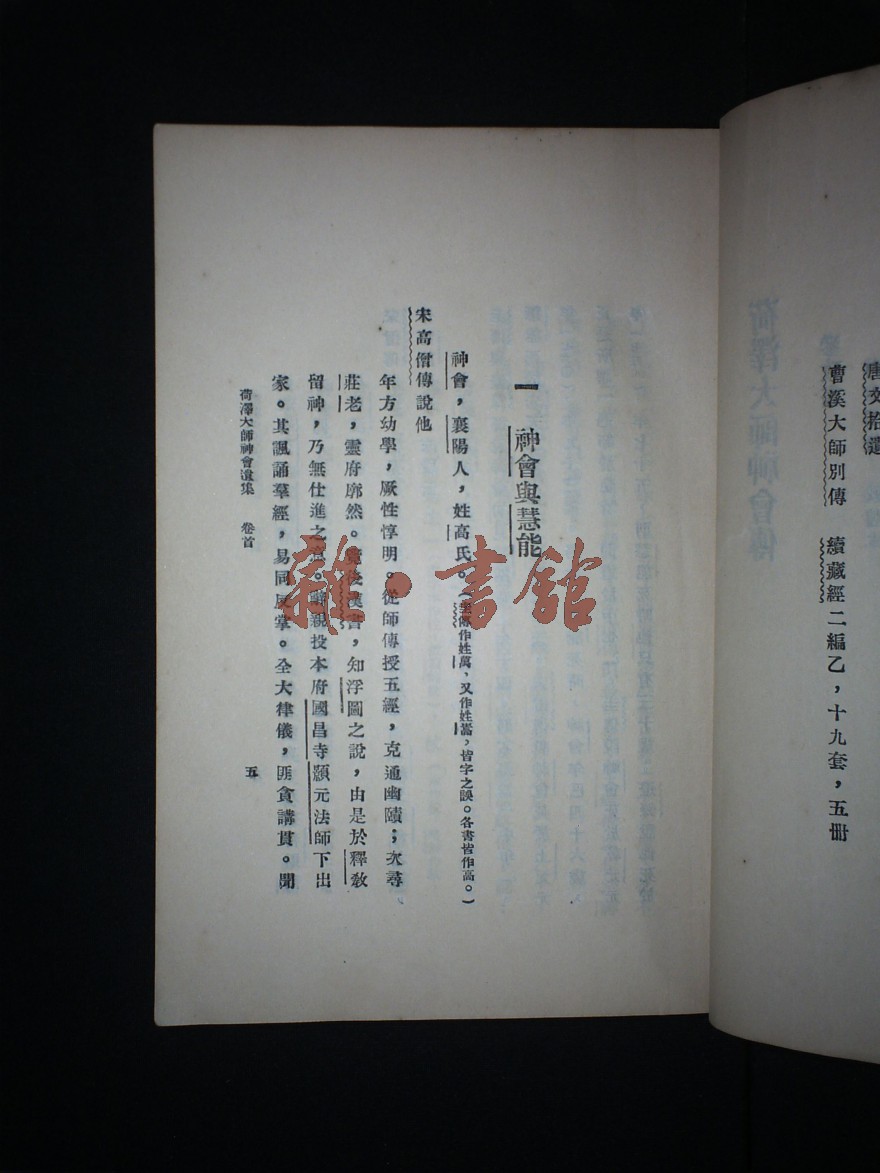 唐文拾遺
曹溪大師別傳　續藏經二編乙，十九套，五冊
一　神會與慧能
神會，襄陽人，姓高氏。（　作姓萬，又作姓嵩，皆字之誤。各書皆作高。）
宋高僧傳說他
年方幼學，厥性惇明。從師傳授五經，克通幽賾；次尋
莊老，靈府廓然。覽後漢書，知浮圖之說，由是於釋教
留神，乃無仕進之意。辭親投本府國昌寺顥元法師下出
家。其諷誦羣經，易同反掌。全大律儀，匪貪講貫。聞
荷澤大師神會遺集　卷首
五
雜·書館